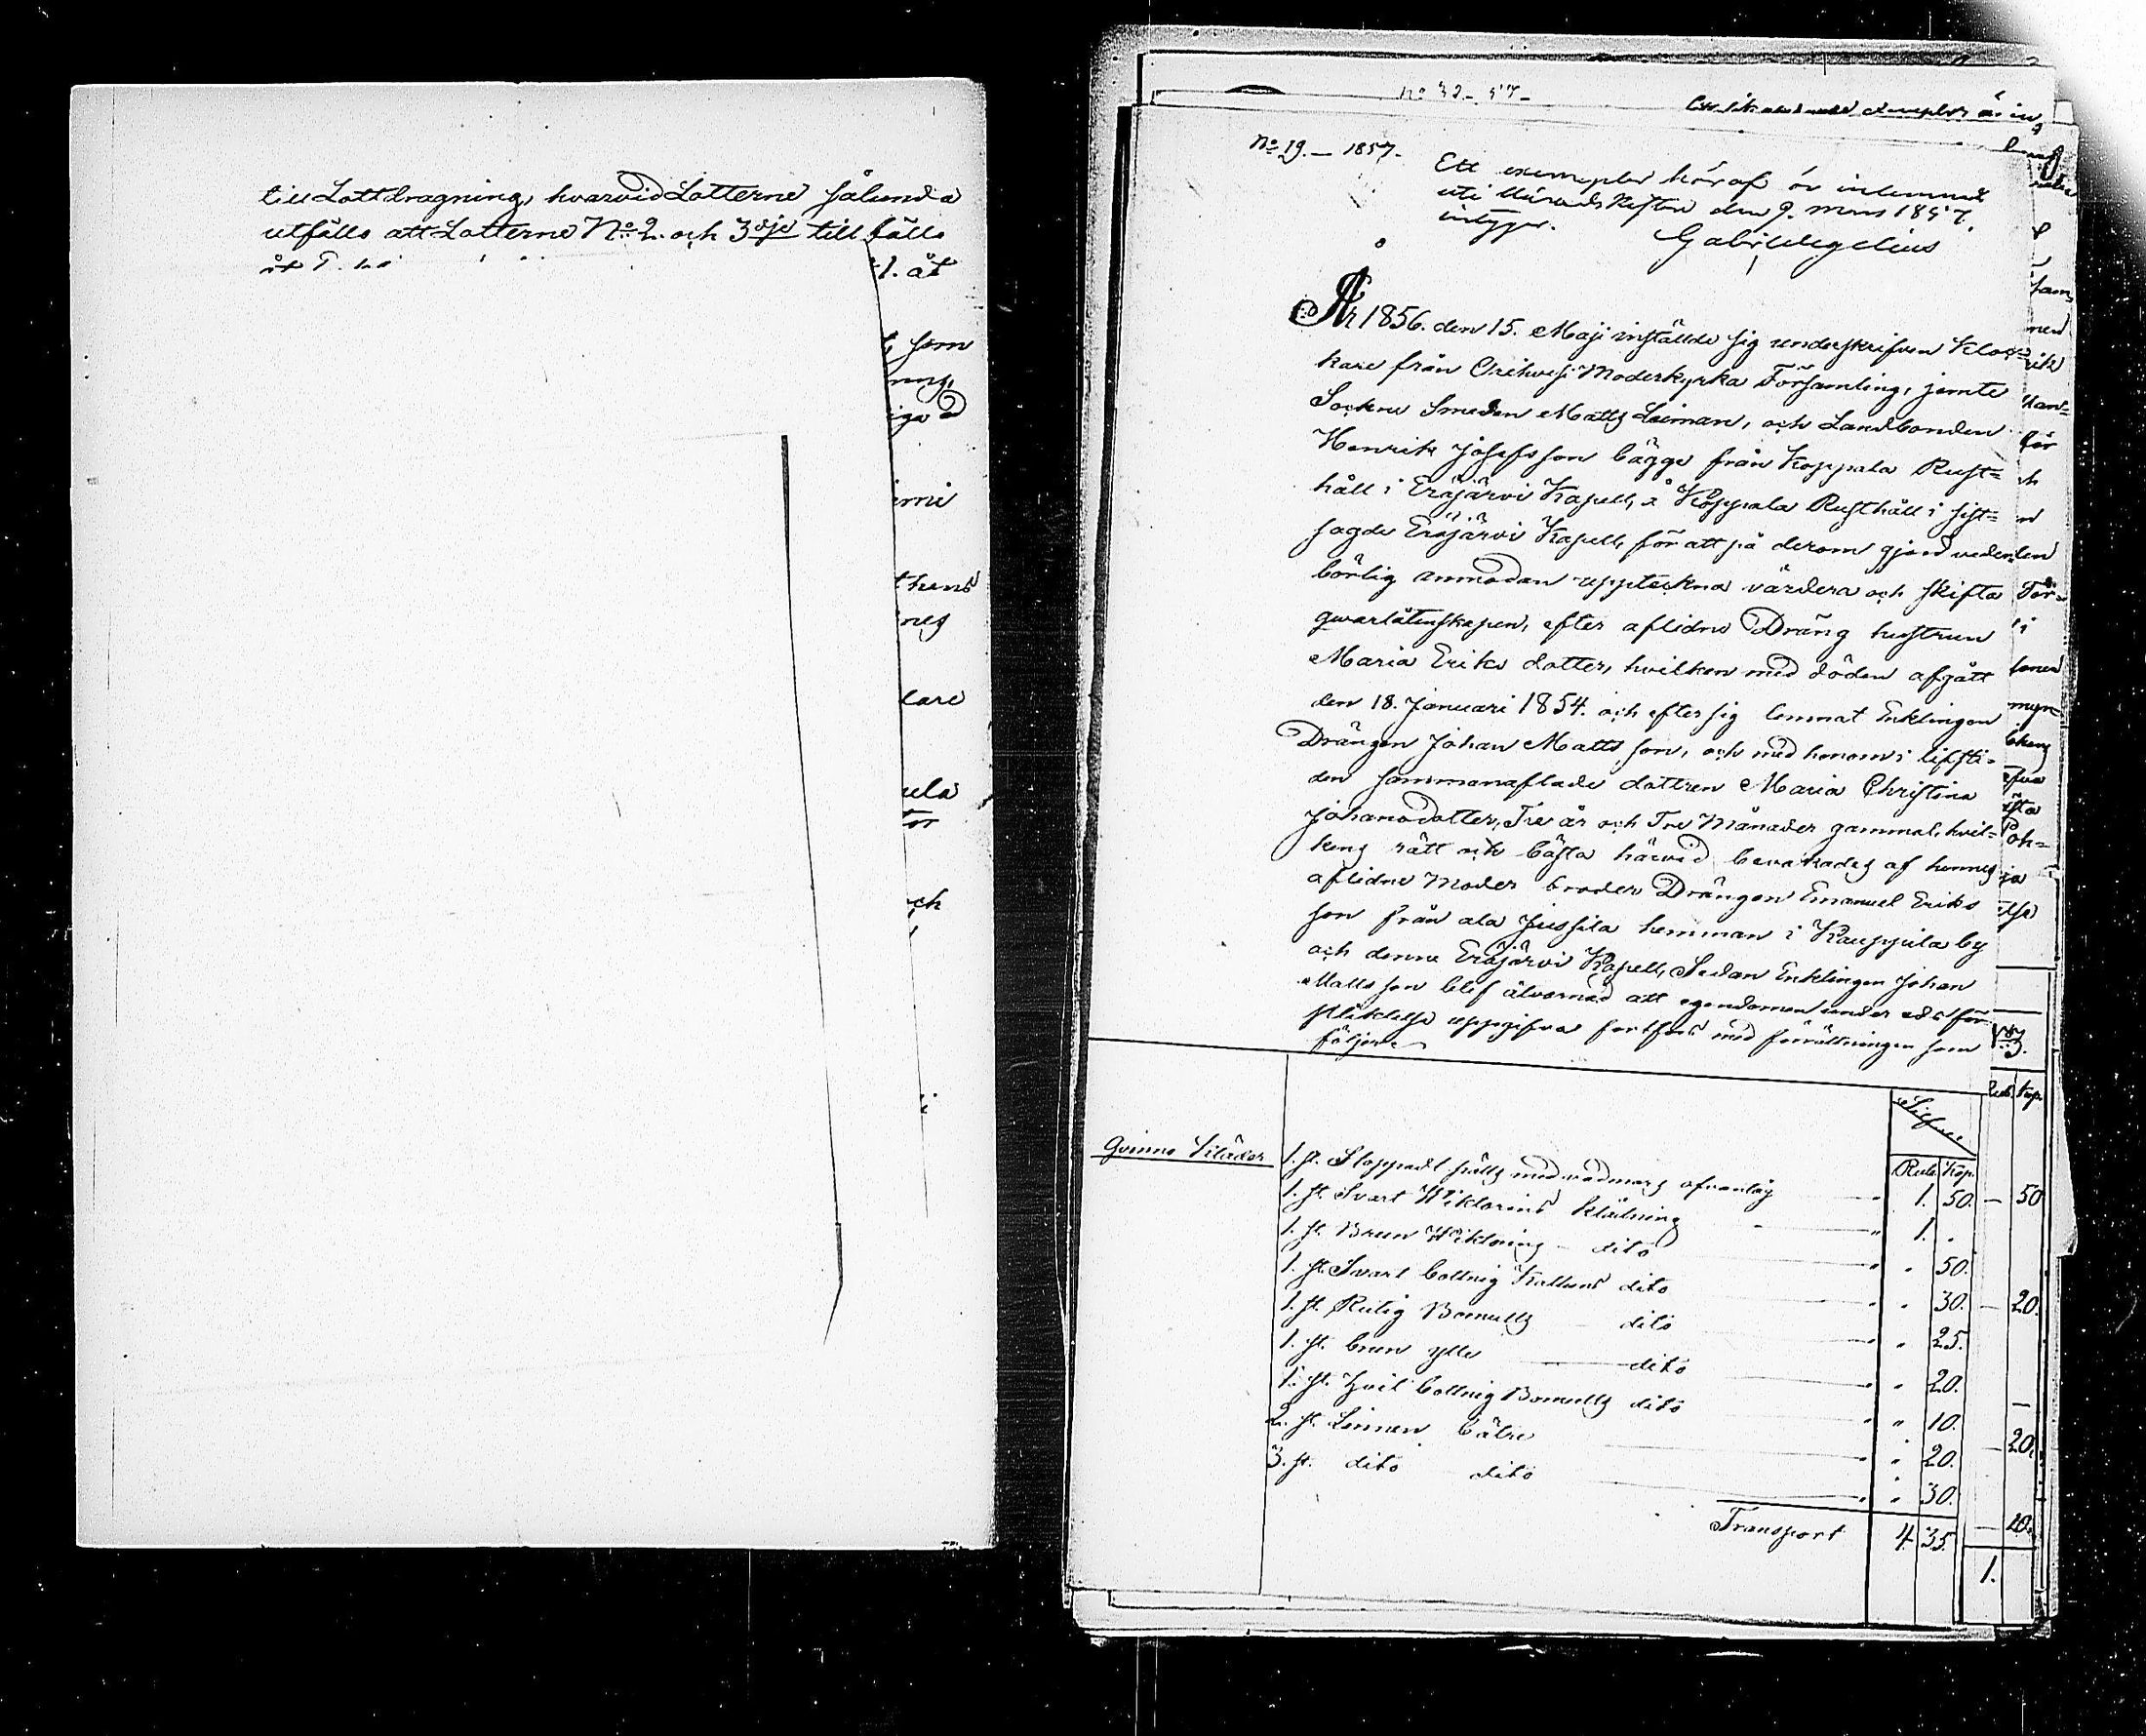 till Lottdragning, hvarvid Lotterne sålunda
utfälls att Lotterne No 2. och 3dje tillfälls
1. åt
som
lare
och
No 32-57-
No 19. — 1857.
Ett exemplar häraf är inlemnad
uti Häradsrätten den 9. Mars 1857.
intygar.
Gab: Wegelius
År 1856. den 15. Maji inställde sig underskrifven Kloc-
kare från Orihvesi Moderkyrka Församling, jemte
Sockne Smeden Matts Leiman, och Landbonden
Henrik Josefsson bägge från Koppala Rust-
håll i Eräjärvi Kapell, å Koppala Rusthåll i sist-
sagde Eräjärvi Kapell, för att på derom gjord veder-
börlig anmodan uppteckna värdera och skifta
qvarlåtenskapen, efter aflidne Dräng hustrun
Maria Eriks dotter, hvilken med döden afgått
den 18. Januari 1854. och efter sig lemnat Enklingen
Drängen Johan Matts son, och med honom i lifsti-
den sammanaflade dottren Maria Christina
Johansdotter, Tre år och Tre Månader gammal, hvil-
kens rätt och bästa härvid bevakades af hennes
aflidne Moders broder Drängen Emanuel Eriks
son från ala Jussila hemman i Kauppila by
och denne Eräjärvi Kapell, Sedan Enklingen Johan
Matts son blef åtvarnad att egendomen under eds för-
pliktelse uppgifva fortfors med förrättningen som
följer
Silfver
Rub. Kop.
Qvinno Kläder
1. st. Stoppadt fälls med vadmars ofvantåg 1. 50.
1. st. Svart Wiktorins Klädning 1. .
1. st. Brun Wiktorins dito " 50.
1. st. Svart bottnig Kattuns dito " 30.
1. st. Rutig Bomulls dito " 25.
1. st. brun ylle dito " 20.
1. st. hvit bottnig Bomulls dito " 10.
2. st. Linnen bätre " 20.
3. st. dito dito " 30.
Transport 4. 35.
Rub. Kop.
50
20.
20.
20.
1.